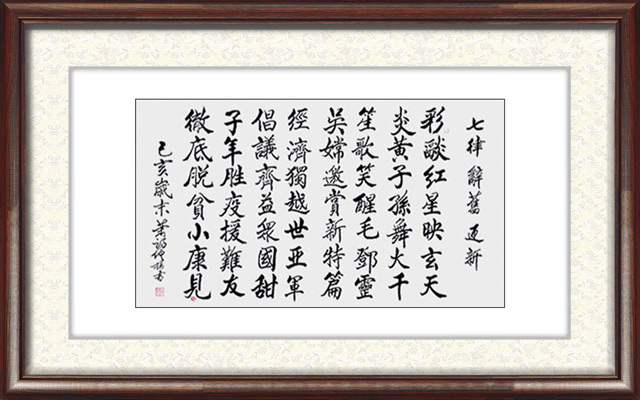 七律 辭舊迎新
彩紅星映玄天
炎黃子孫舞大千
笙歌笑醒毛鄧靈
吳嫦邀賞新特篇
經濟獨越世亞軍
倡議齊益眾國甜
子年胜疫援難友
徹底脫貧小康見
己亥歲末 蕭書